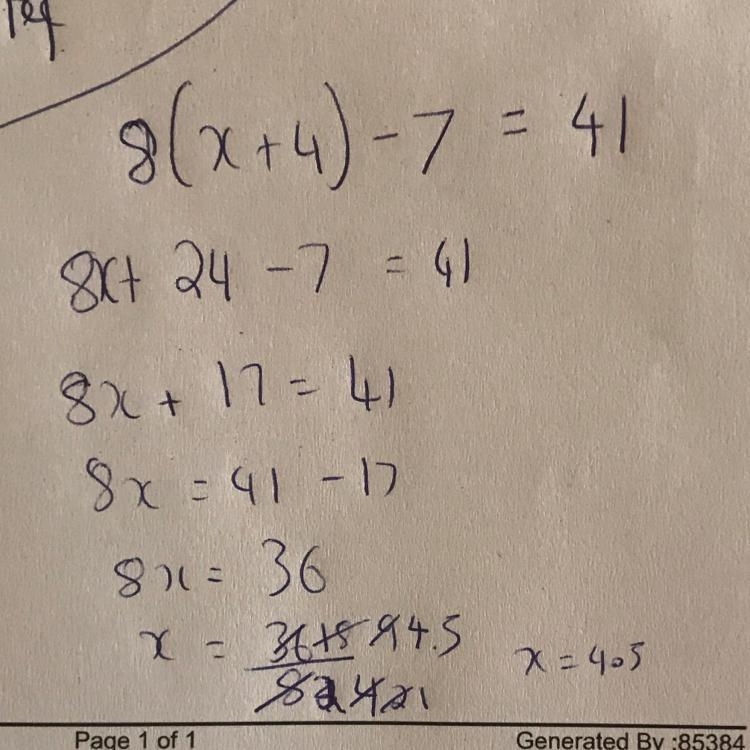 8(x+4)-7 = 41
8x+ 24 -7 = 41
8x + 17 = 41
8x = 41 -17
8x = 36
x = 4.5 x = 4.5
Page 1 of 1 Generated By :85384